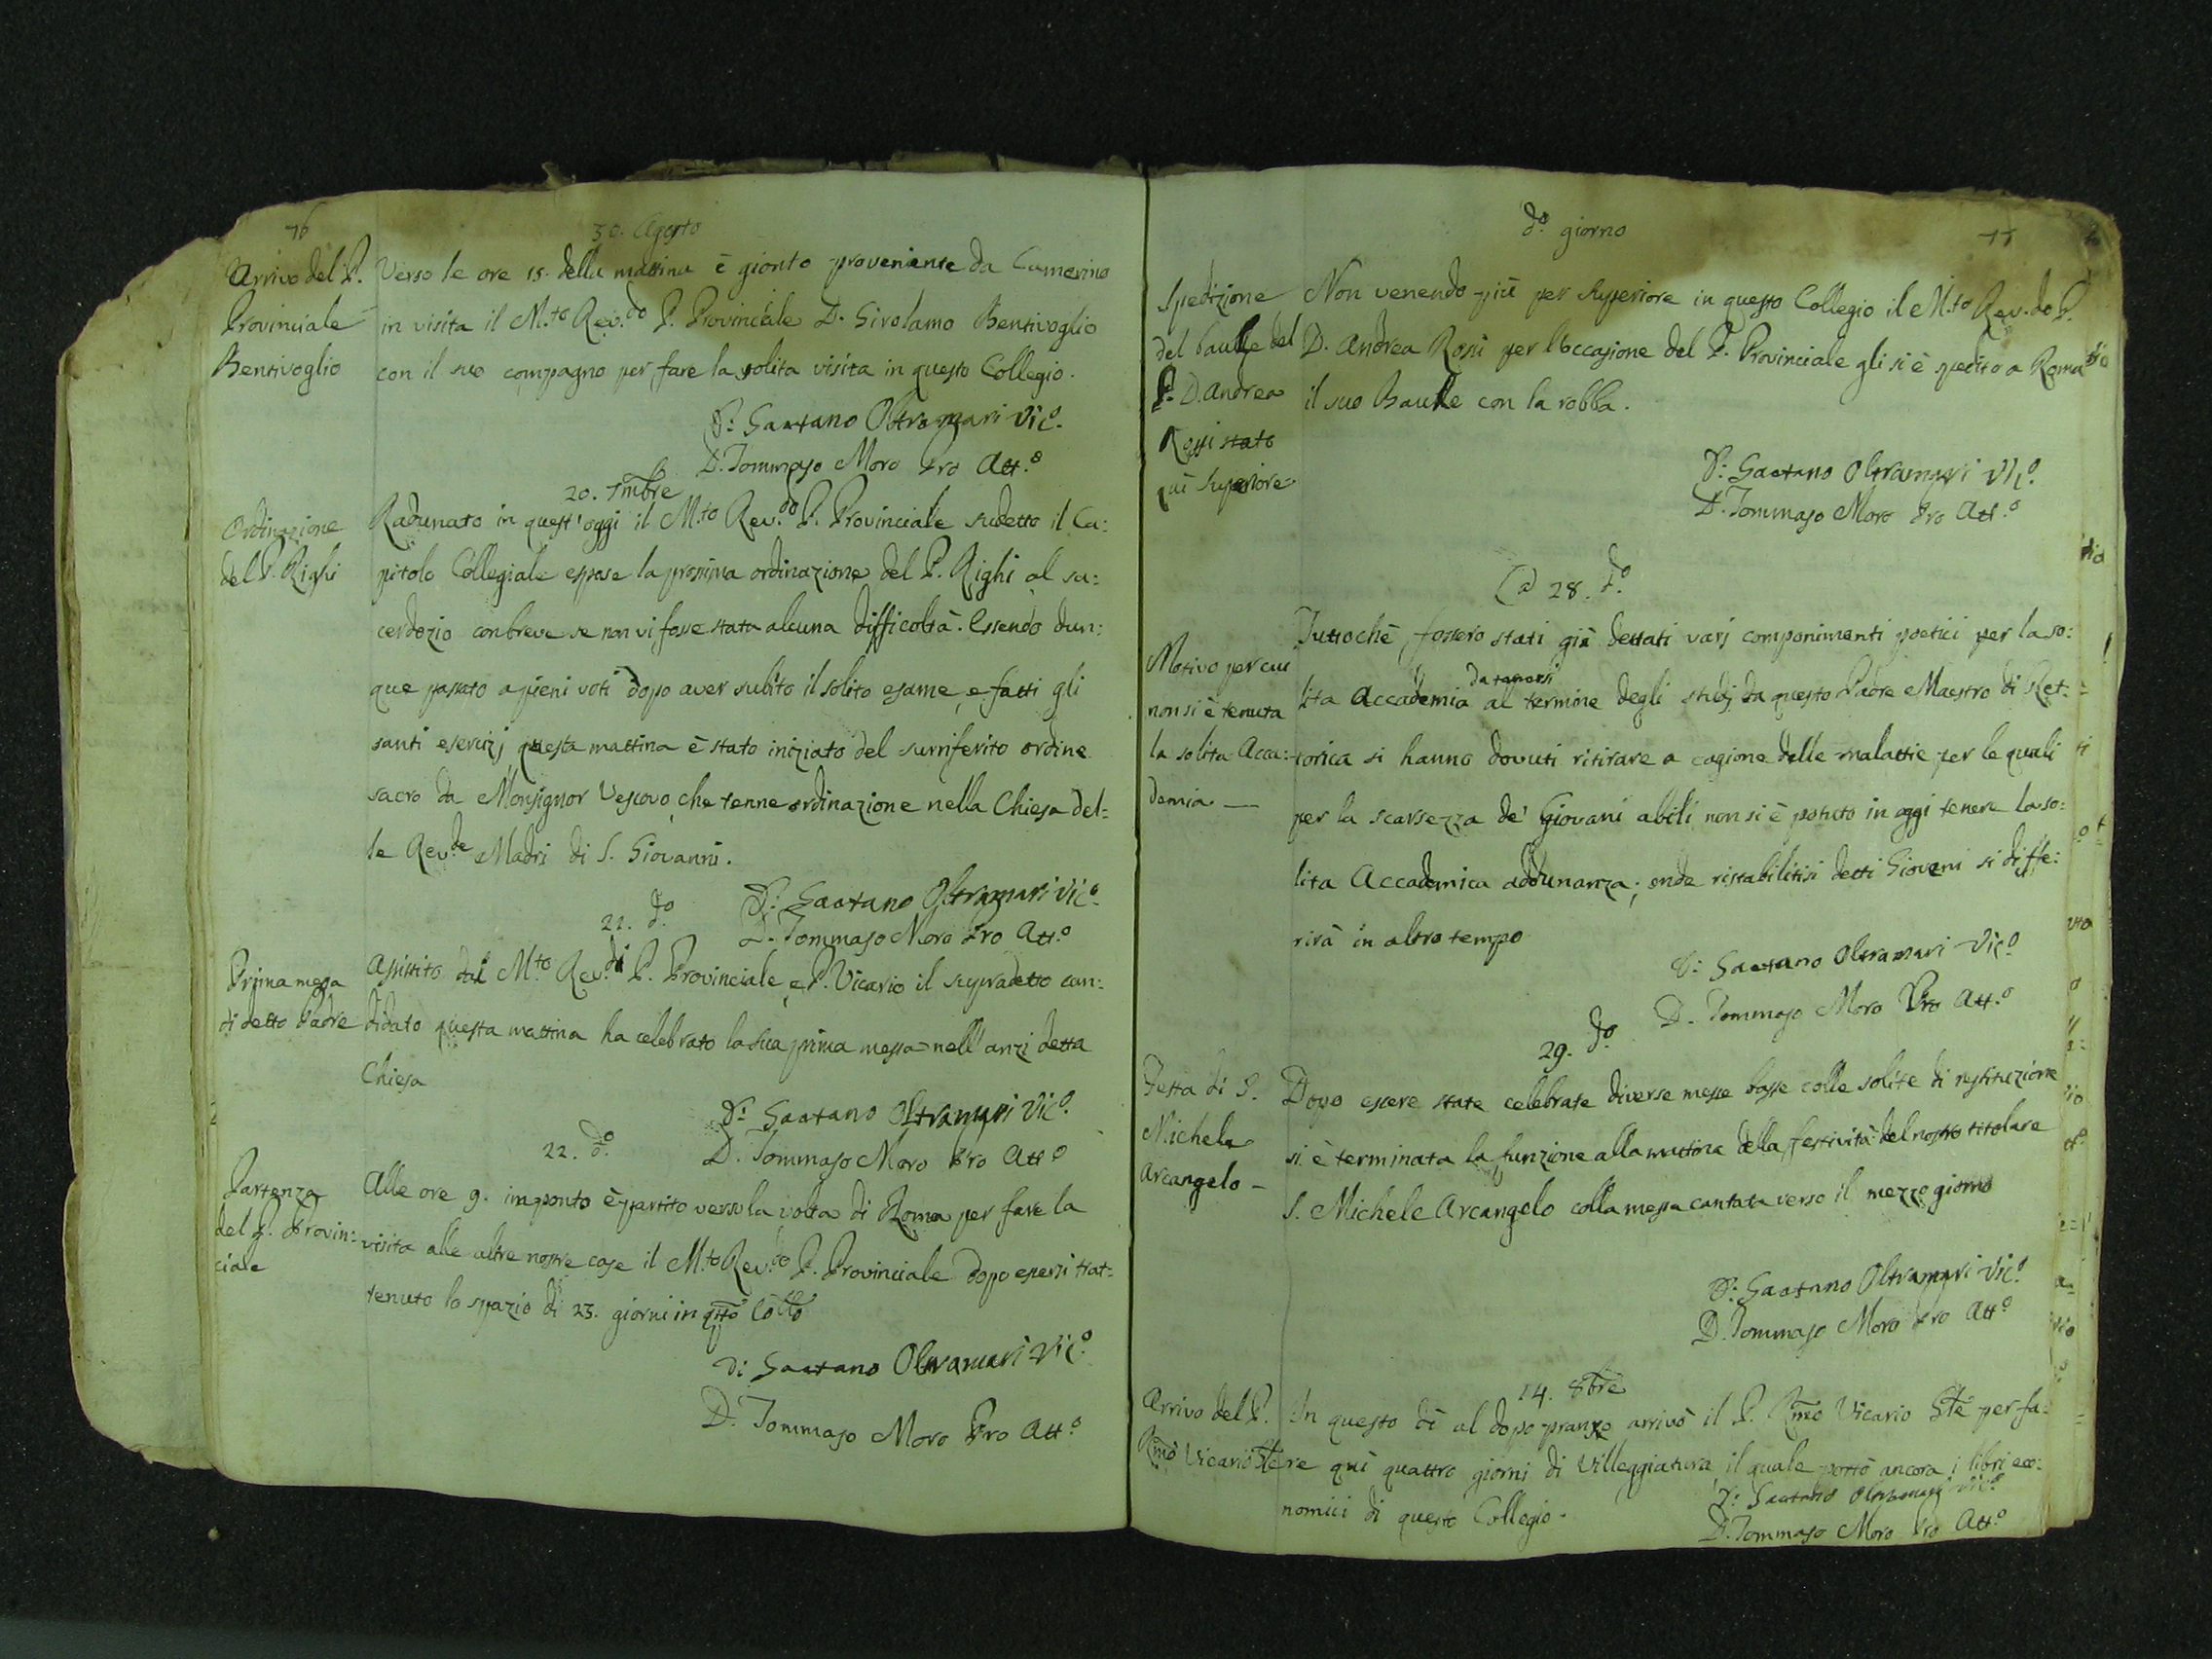 76
30. Agosto
Arrivo del P.
Provinciale
Bentivoglio
Verso le ore 15. della mattina è gionto proveniente da Camerino
in visita il M.to Rev.do P. Provinciale D. Girolamo Bentivoglio
con il suo compagno per fare la solita visita in questo Collegio.
D: Gaetano Oltramari Vic.o
D. Tommaso Moro Pro Att.o
20. 7mbre
Ordinazione
del P. Righi
Radunato in quest'oggi il M.to Rev.do P. Provinciale sudetto il Ca:
pitolo Collegiale espose la prossima ordinazione del P. Righi al sa:
cerdozio con breve se non vi fosse stata alcuna difficoltà. Essendo dun:
que passato a pieni voti dopo aver subito il solito esame, e fatti gli
santi esercizj questa mattina è stato iniziato del surriferito ordine
sacro da Monsignor Vescovo, che tenne ordinazione nella Chiesa del:
le Rev.de Madri di S. Giovanni.
D: Gaetano Oltramari Vic.o
D. Tommaso Moro Pro Att.o
21. do
Prima messa
di detto Padre
Assistito dal M.to Rev.di P. Provinciale, e P. Vicario il supradetto can:
didato questa mattina ha celebrato la sua prima messa nell'anzi detta
Chiesa
D: Gaetano Oltramari Vic.o
D. Tommaso Moro Pro Att.o
22. do
Partenza
del P. Provin:
ciale
Alle ore 9. in ponto è partito verso la volta di Roma per fare la
visita alle altre nostre case il M.to Rev.do P. Provinciale dopo essersi trat:
tenuto lo spazio di 23. giorni in qsto Collo
D: Gaetano Oltramari Vic.o
D. Tommaso Moro Pro Att.o
do giorno
77
Spedizione
del baulle del
P. D. Andrea
Rossi stato
qui Superiore
Non venendo più per Superiore in questo Collegio il M.to Rev.do P.
D. Andrea Rossi per l'occasione del P. Provinciale gli si è spedito a Roma
il suo Baulle con la robba.
D: Gaetano Oltramari Vic.o
D. Tommaso Moro Pro Att.o
28. do
Motivo per cui
non si è tenuta
la solita Acca:
demia
Tuttochè fossero stati già dettati varj componimenti poetici per la so:
lita Accademia da tenersi al termine degli studj da questo Padre Maestro di Ret:
torica si hanno dovuti ritirare a cagione delle malattie per le quali
per la scarsezza de' Giovani abili non si è potuto in oggi tenere la so:
lita Accademica addunanza; onde ristabilitisi detti Giovani si diffe:
rirà in altro tempo
D: Gaetano Oltramari Vic.o
D. Tommaso Moro Pro Att.o
29. do
Festa di S.
Michele
Arcangelo
Dopo essere state celebrate diverse messe basse colle solite di restituzione
si è terminata la funzione alla mattina della festività del nostro titolare
S. Michele Arcangelo colla messa cantata verso il mezzo giorno
D: Gaetano Oltramari Vic.o
D. Tommaso Moro Pro Att.o
14. 8bre
Arrivo del P.
Rmo Vicario Gle
In questo dì al dopo pranzo arrivò il P. Rmo Vicario Gle per fa:
re quì quattro giorni di Villeggiatura, il quale portò ancora i libri eco:
nomici di questo Collegio.
D: Gaetano Oltramari Vic.o
D. Tommaso Moro Pro Att.o